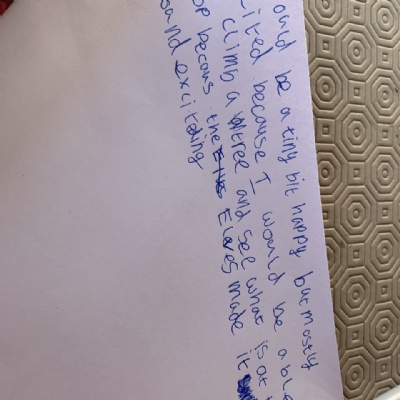 ould be a tiny bit happy but mostly
ited because I would be able
climb a tree and see what is at
op becaus the Elves made it
sound excitding